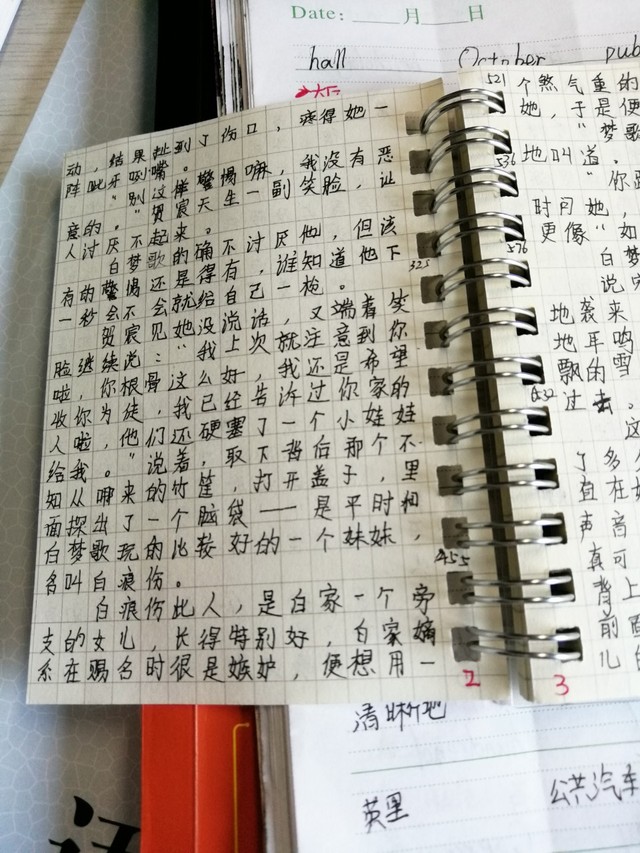 Date: 月 日
hall October pub
动，结果扯到了伤口，疼得她一
阵呲牙咧嘴。
“别这样警惕嘛，我没有恶
意的。”贺宸天生一副笑脸，让
人讨厌不起来。
白梦歌的确不讨厌他，但该
有的警惕还是得有，谁知道他下
325
一秒会不会就给自己一枪。
贺宸见她没说话，又端着笑
脸继续说：“我上次就注意到你
啦，你根骨这么好，我还是希望
收你为徒，我已经告诉过你家的
人啦，他们还硬塞了一个小娃娃
给我。”说着，取下背后那个不
知从哪来的竹筐，打开盖子，里
面探出了一个脑袋——是平时和
白梦歌玩的比较好的一个妹妹，
名叫白痕伤。
455
白痕伤此人，是白家一个旁
支的女儿，长得特别好，白家嫡
系在赐名时很是嫉妒，便想用一
2
521
个煞气重的
她，于是便
“梦歌
536
地叫道。
“你
时问她，
更像“如
576
白梦
说完
地袭来
地耳鸣
飘的雪
632
过去。
这
了多
直在
声音
真可
背上
前面
儿的
3
清晰地
英里 公共汽车